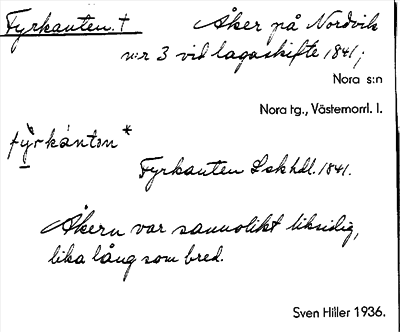 Fyrkanten. † Åker på Nordvik
n:r 3 vid lagaskifte 1841;
Nora s:n
Nora tg., Västernorrl. l.
fỳ̠rkántən *
Fyrkanten Lskhdl. 1841.
Åkern var sannolikt liksidig,
lika lång som bred.
Sven Hiller 1936.